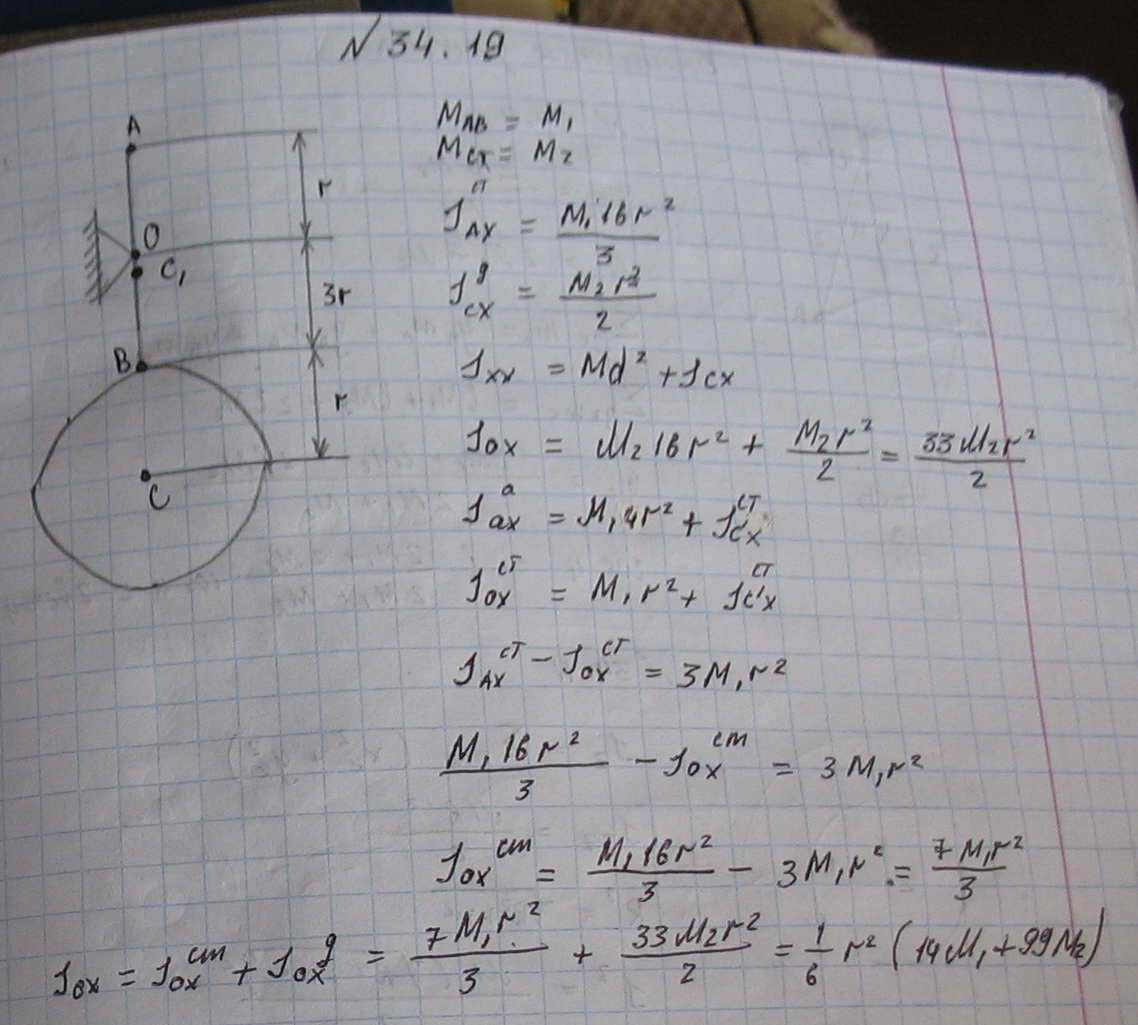 N 34.19
A
r
O
C₁
3r
B
r
C
M_AB = M₁
M_CT = M₂
J_AX^СТ = M₁16r²/3
J_CX^g = M₂r²/2
J_XX = Md² + J_CX
J_OX = M₂16r² + M₂r²/2 = 33M₂r²/2
J_ax^a = M₁4r² + J_C'X^СТ
J_OX^СТ = M₁r² + J_C'X^СТ
J_AX^СТ − J_OX^СТ = 3M₁r²
M₁16r²/3 − J_OX^cm = 3M₁r²
J_OX^cm = M₁16r²/3 − 3M₁r² = 7M₁r²/3
J_OX = J_OX^cm + J_OX^g = 7M₁r²/3 + 33M₂r²/2 = 1/6 r² (14M₁ + 99M₂)